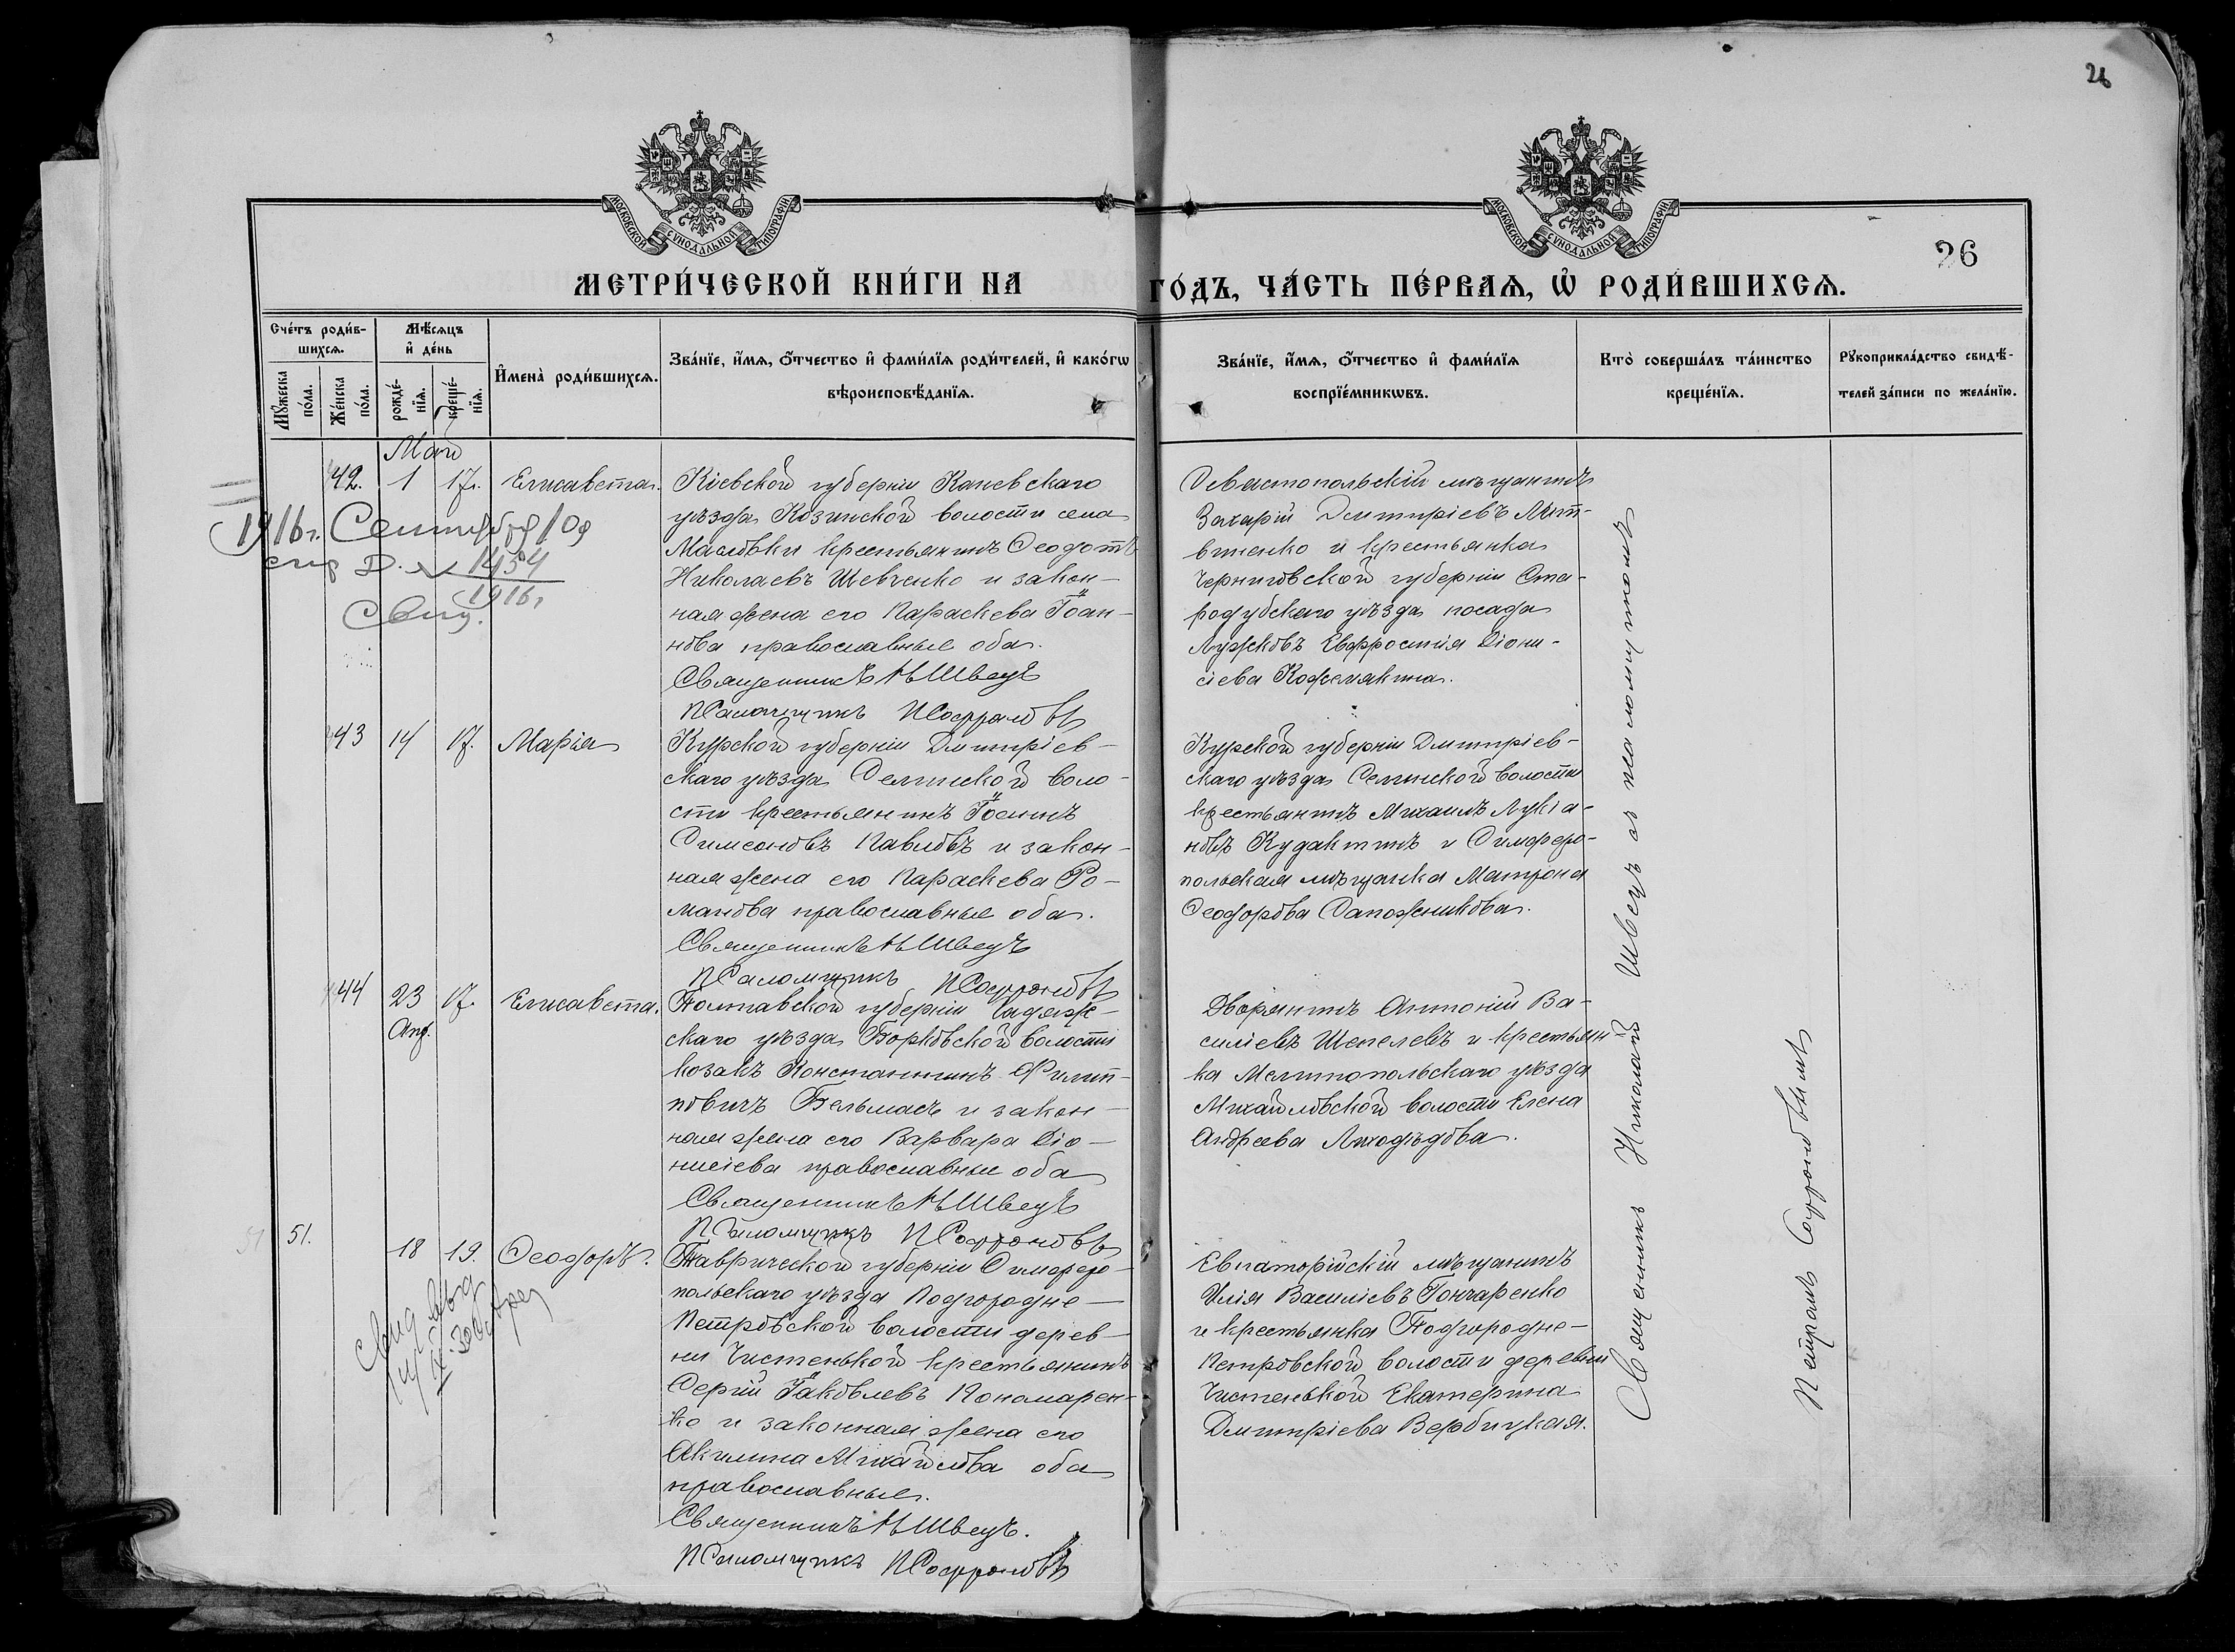 26
МОСКОВСКОЙ СѴНОДАЛЬНОЙ ТИПОГРАФІИ
МОСКОВСКОЙ СѴНОДАЛЬНОЙ ТИПОГРАФІИ
26
МЕТРИ́ЧЕСКОЙ КНИ́ГИ НА ГО́ДЪ, ЧА́СТЬ ПЕ́РВАѦ, Ѽ РОДИ́ВШИХСѦ.
Сче́тъ роди́в-
шихсѧ.
Мѣ́сѧцъ
и҆ де́нь
Мꙋ́жеска
по́ла.
Же́нска
по́ла.
рожде́-
нїѧ.
креще́-
нїѧ.
И҆мена̀ роди́вшихсѧ.
Зва́нїе, и҆́мѧ, ѻ҆́тчество и҆ фами́лїѧ роди́телей, и҆ како́гѡ
вѣроисповѣ́данїѧ.
Зва́нїе, и҆́мѧ, ѻ҆́тчество и҆ фами́лїѧ
воспрїе́мникѡвъ.
Кто̀ соверша́лъ та́инство
креще́нїѧ.
Рꙋкоприкла́дство свидѣ́-
телей за́писи по жела́нїю.
Май
42. 1 17. Елисавета.
Кіевской губерніи Каневскаго
уѣзда Козинской волости села
Масловки крестьянинъ Ѳеодотъ
Николаевъ Шевченко и закон-
ная жена его Параскева Іоан-
нова православные оба.
Священникъ Н Швецъ
Псаломщикъ П Софроновъ
Севастопольскій мѣщанинъ
Захарій Димитріевъ Лит-
виненко и крестьянка
Черниговской губерніи Ста-
родубскаго уѣзда посада
Лужковъ Евфросинія Діони-
сіева Кожемякина.
1916 г. Сентября 10 д
1454
1916 г
43 14 17. Марія
Курской губерніи Димитріев-
скаго уѣзда Селинской воло-
сти крестьянинъ Іоаннъ
Симеоновъ Павловъ и закон-
ная жена его Параскева Ро-
манова православные оба.
Священникъ Н Швецъ
Псаломщикъ П Софроновъ
Курской губерніи Димитріев-
скаго уѣзда Селинской волости
крестьянинъ Михаилъ Лукіа-
новъ Кудакинъ и Симферо-
польская мѣщанка Матрона
Ѳеодорова Сапожникова.
44 23 17. Елисавета.
Апр.
Полтавской губерніи Гадяж-
скаго уѣзда Борковской волости
козакъ Константинъ Филип-
повичъ Бельмасъ и закон-
ная жена его Варвара Діо-
нисіева православные оба
Священникъ Н Швецъ
Псаломщикъ П Софроновъ
Дворянинъ Антоній Ва-
силіевъ Шепелевъ и крестьян-
ка Мелитопольскаго уѣзда
Михайловской волости Елена
Андреева Лиходѣдова.
51. 18 19. Ѳеодоръ.
Таврической губерніи Симферо-
польскаго уѣзда Подгородне-
Петровской волости дерев-
ни Чистенькой крестьянинъ
Сергій Іаковлевъ Пономарен-
ко и законная жена его
Акилина Михайлова оба
православные.
Священникъ Н Швецъ.
Псаломщикъ П Софроновъ
Евпаторійскій мѣщанинъ
Илія Василіевъ Гончаренко
и крестьянка Подгородне-
Петровской волости деревни
Чистенькой Екатерина
Димитріева Вербицкая.
Священникъ Николай Швецъ съ псаломщикомъ
Петромъ Софроновымъ